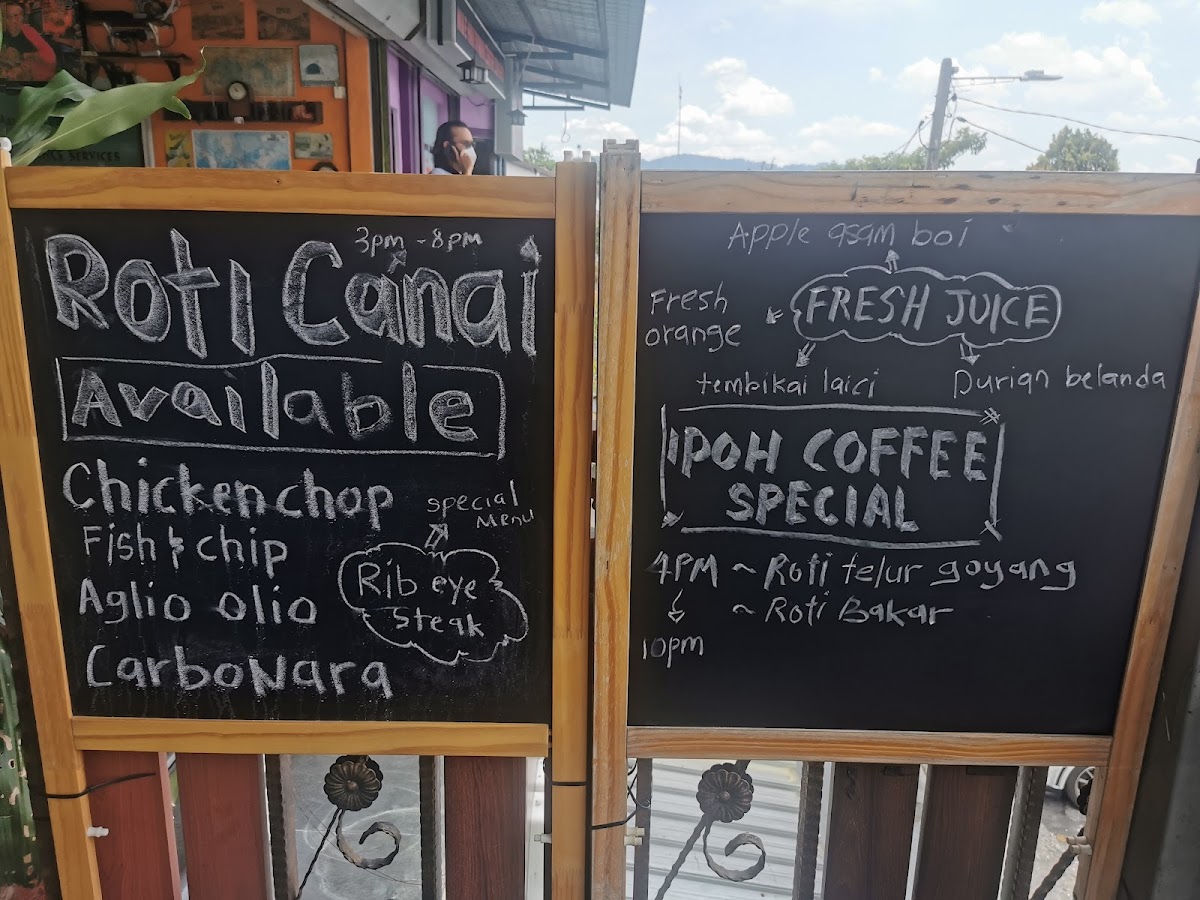 3pm - 8pm
Roti Canai
Available
Chicken chop
Fish & chip
Aglio olio
Carbonara
special
Menu
Rib eye
Steak
Apple asam boi
FRESH JUICE
Fresh
orange
tembikai laici
Durian belanda
IPOH COFFEE
SPECIAL
4PM ~ Roti telur goyang
~ Roti Bakar
10pm
SERVICES